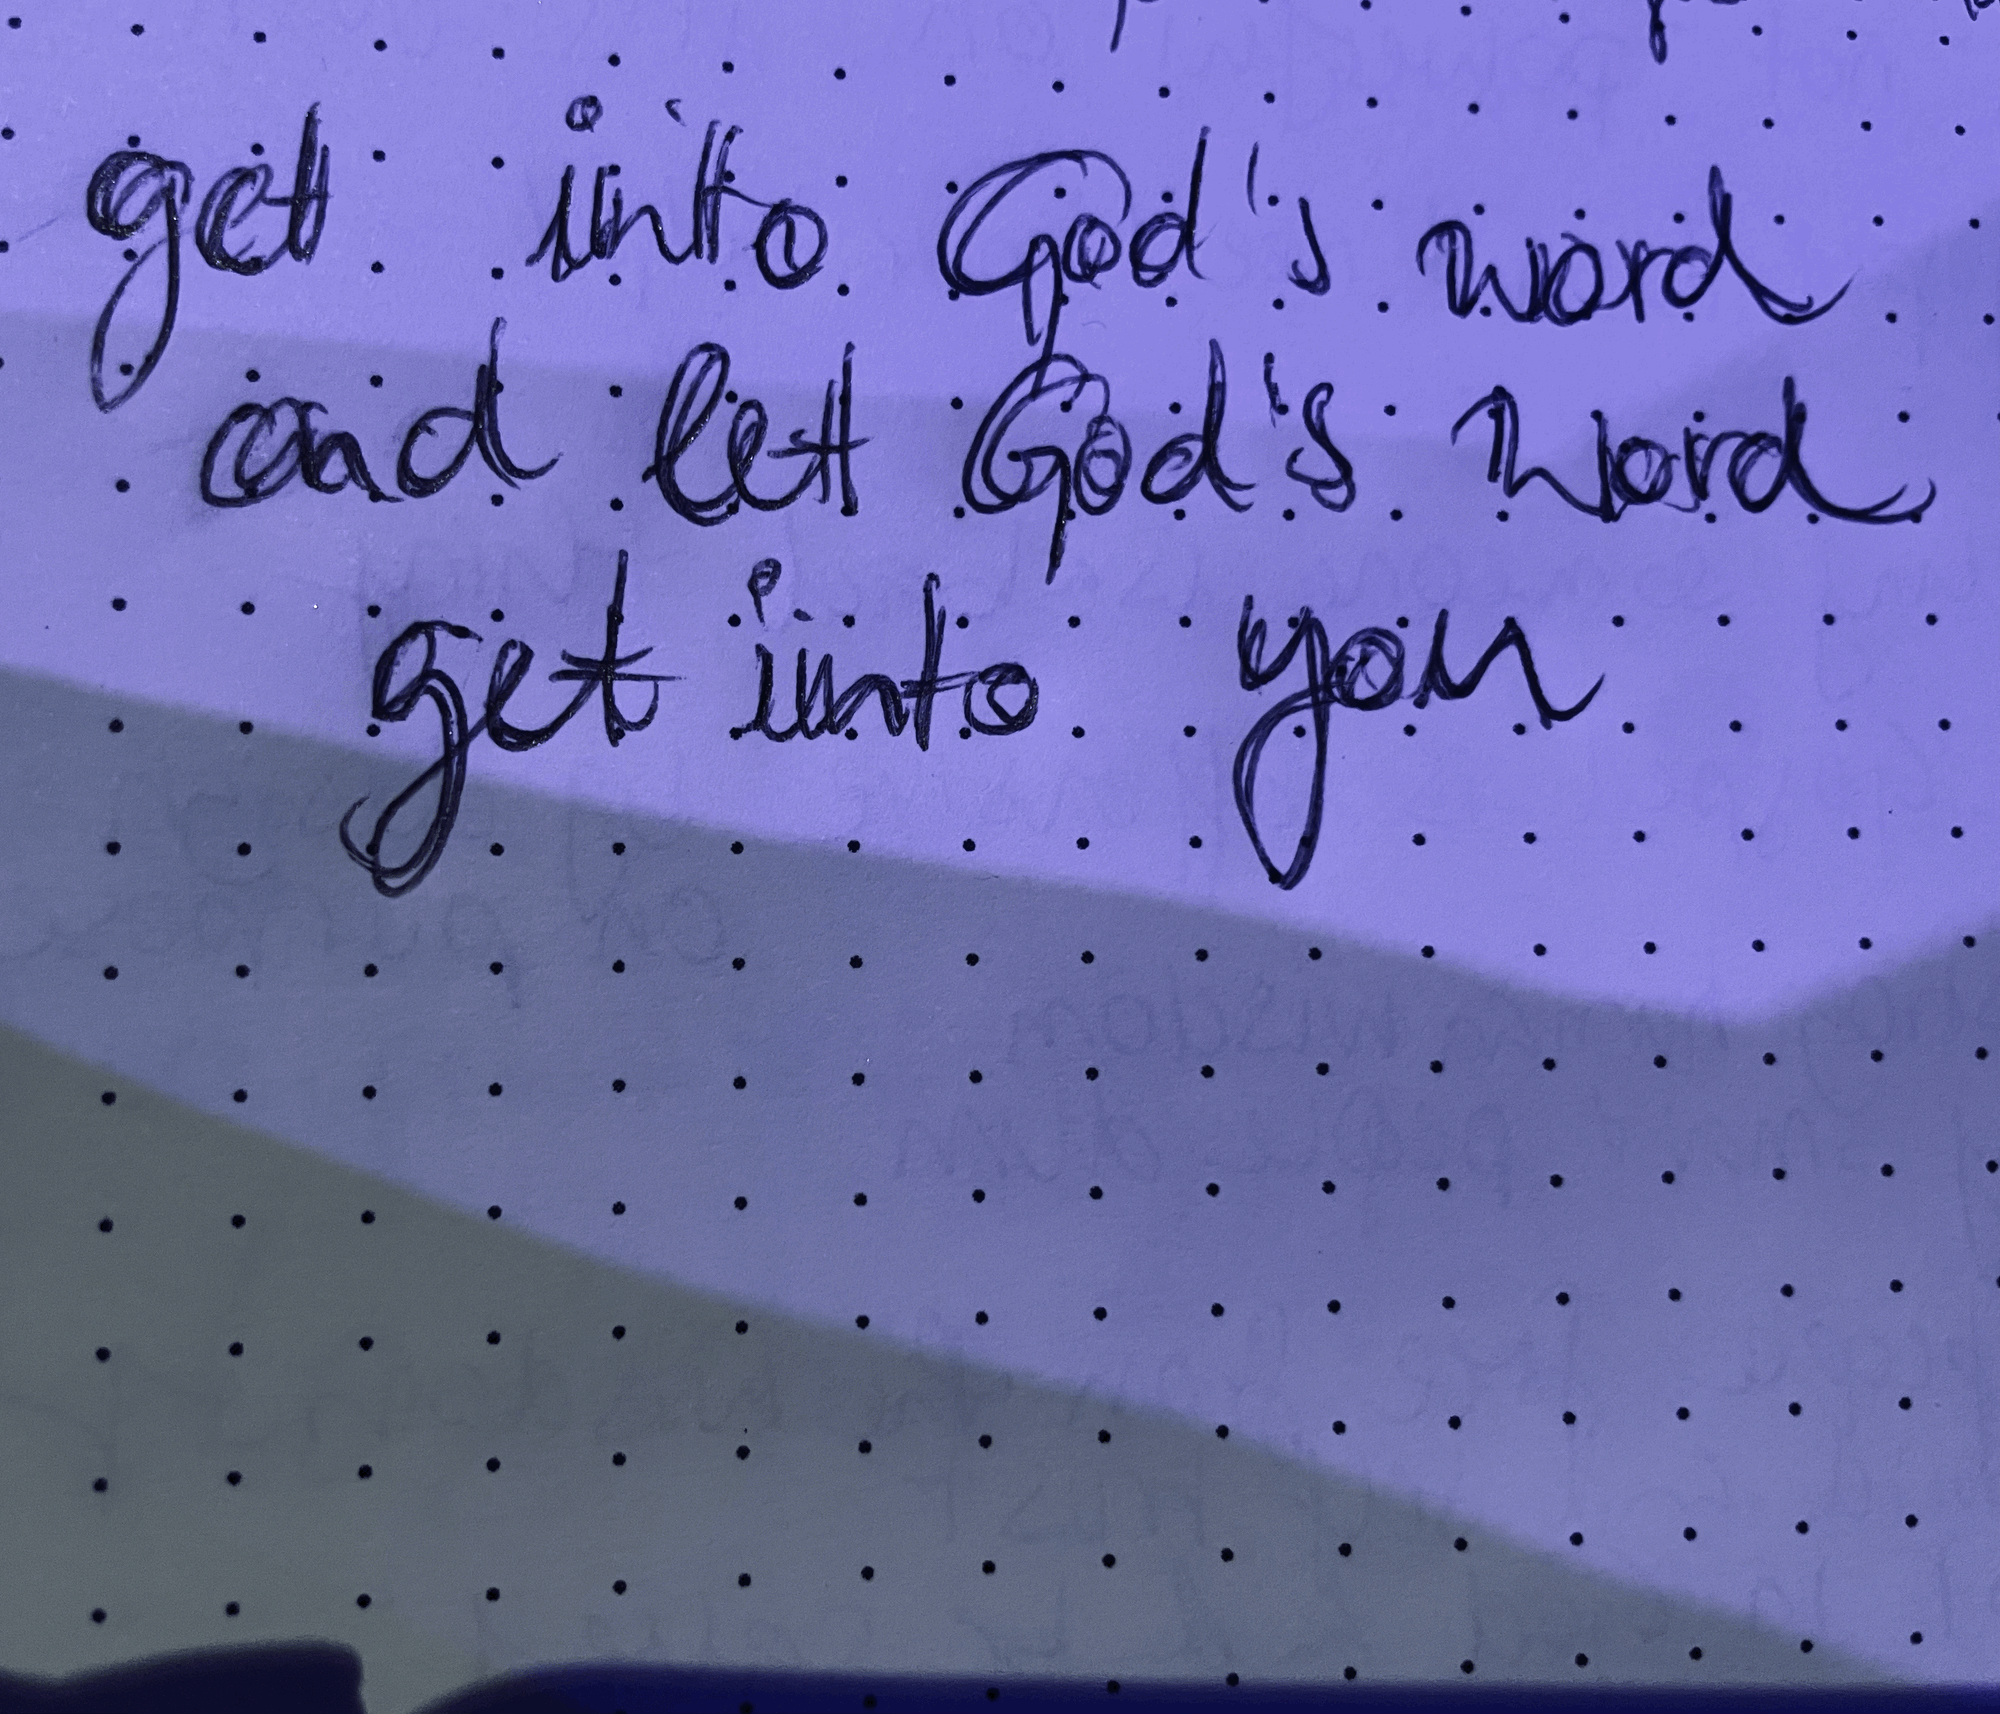 get into God's word
and let God's word
get into you